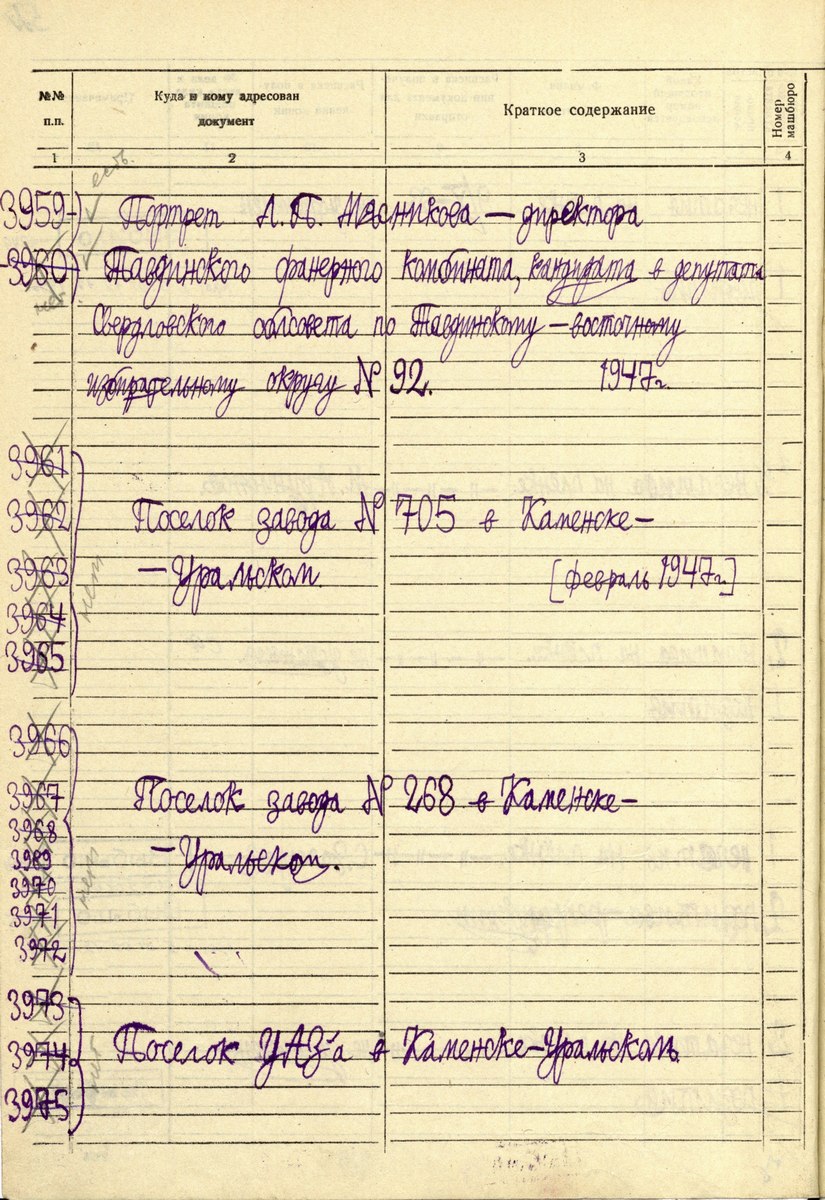 №№ п.п.
Куда и кому адресован документ
Краткое содержание
Номер машбюро
1 2 3 4
есть
3959-) Портрет А.П. Мясникова — директора
3960) Тавдинского фанерного комбината, кандидата в депутата
нет
Свердловского облсовета по Тавдинскому — восточному
избирательному округу № 92. 1947г.
3961
3962 Поселок завода № 705 в Каменске-
3963 — Уральском. [февраль 1947г.]
нет
3964
3965
3966
3967 Поселок завода № 268 в Каменске-
3968
3989 — Уральском.
нет
3970
3971
3972
3973
3974 Поселок УАЗ-а в Каменске-Уральском.
нет
3975